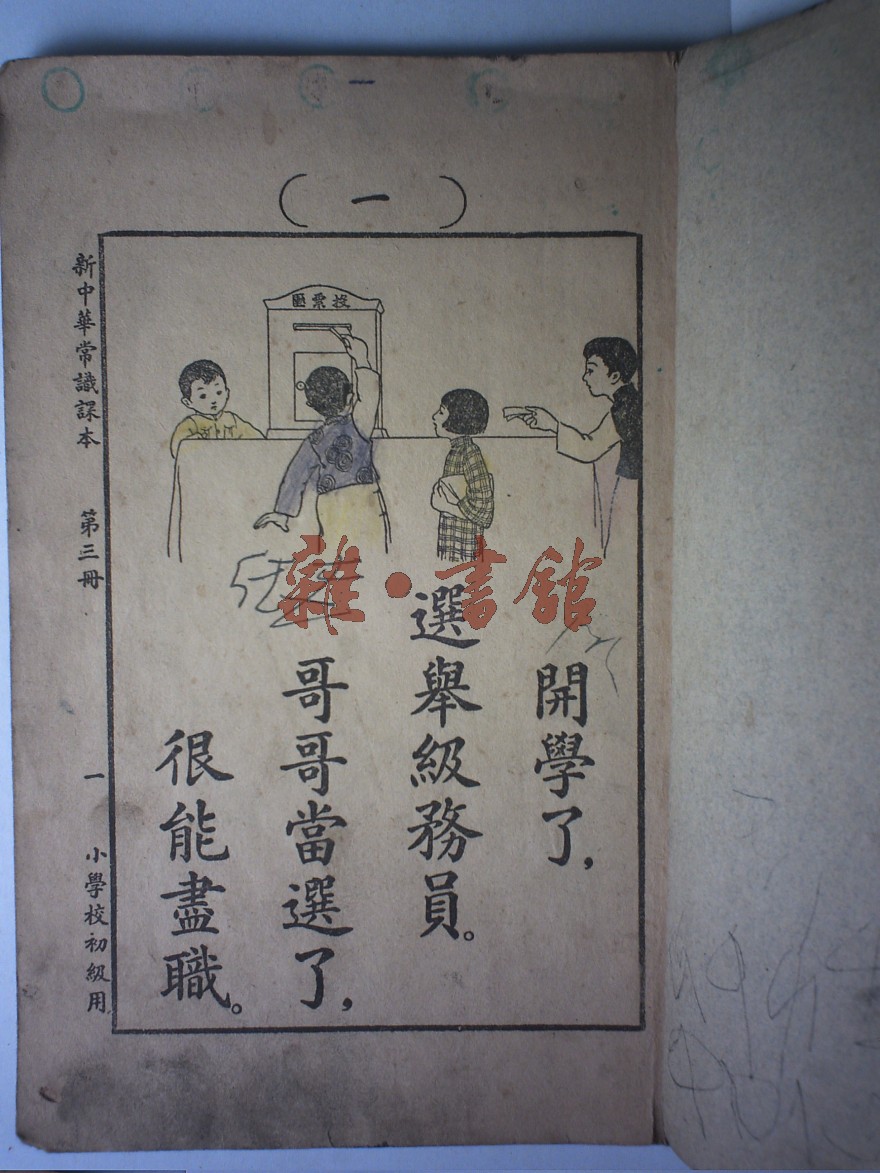 （一）
投票匭
開學了，
選舉級務員。
哥哥當選了，
很能盡職。
新中華常識課本　第三冊　一　小學校初級用
雜·書館